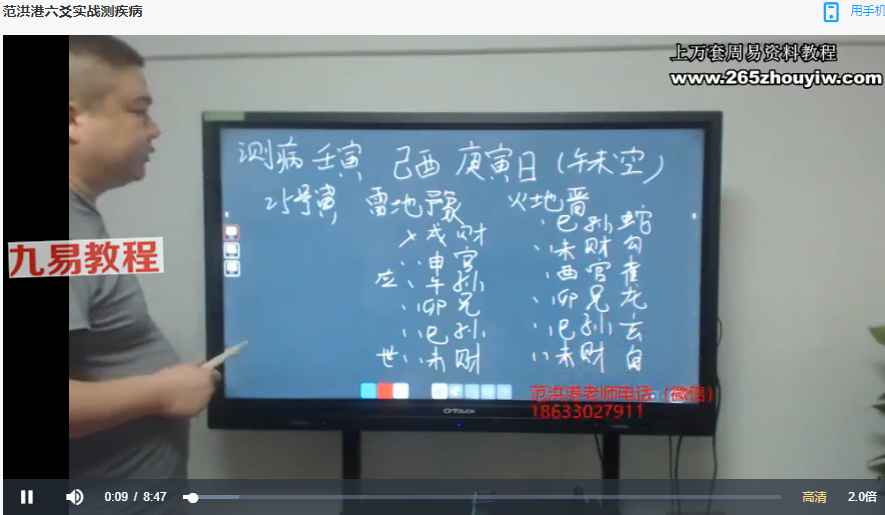 范洪港六爻实战测疾病
用手机
上万套周易资料教程
www.265zhouyiw.com
九易教程
测病 壬寅 己酉 庚寅日 (午未空)
25号寅 雷地予象 火地晋
乂 戌 财 、巳孙 蛇
、、申官 、、未财 勾
应、午孙 、酉官 雀
、、卯兄 、、卯兄 龙
、、巳孙 、、巳孙 玄
世、、未财 、、未财 白
范洪港老师电话（微信）
18633027911
0:09 / 8:47
高清
2.0倍